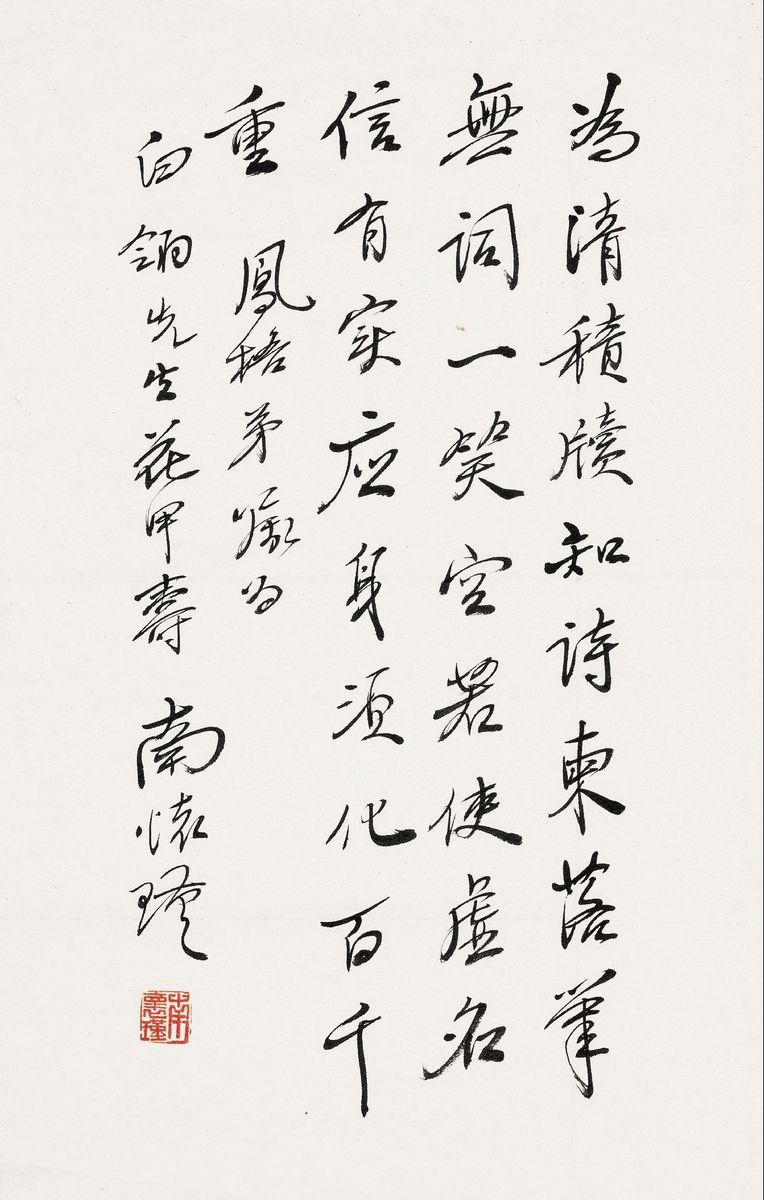 為清積牘知詩柬落筆
無詞一笑空若使虛名
信有実应身須化百千
重 鳳梧弟囑为
白翎先生花甲壽 南懷瑾
南懷瑾